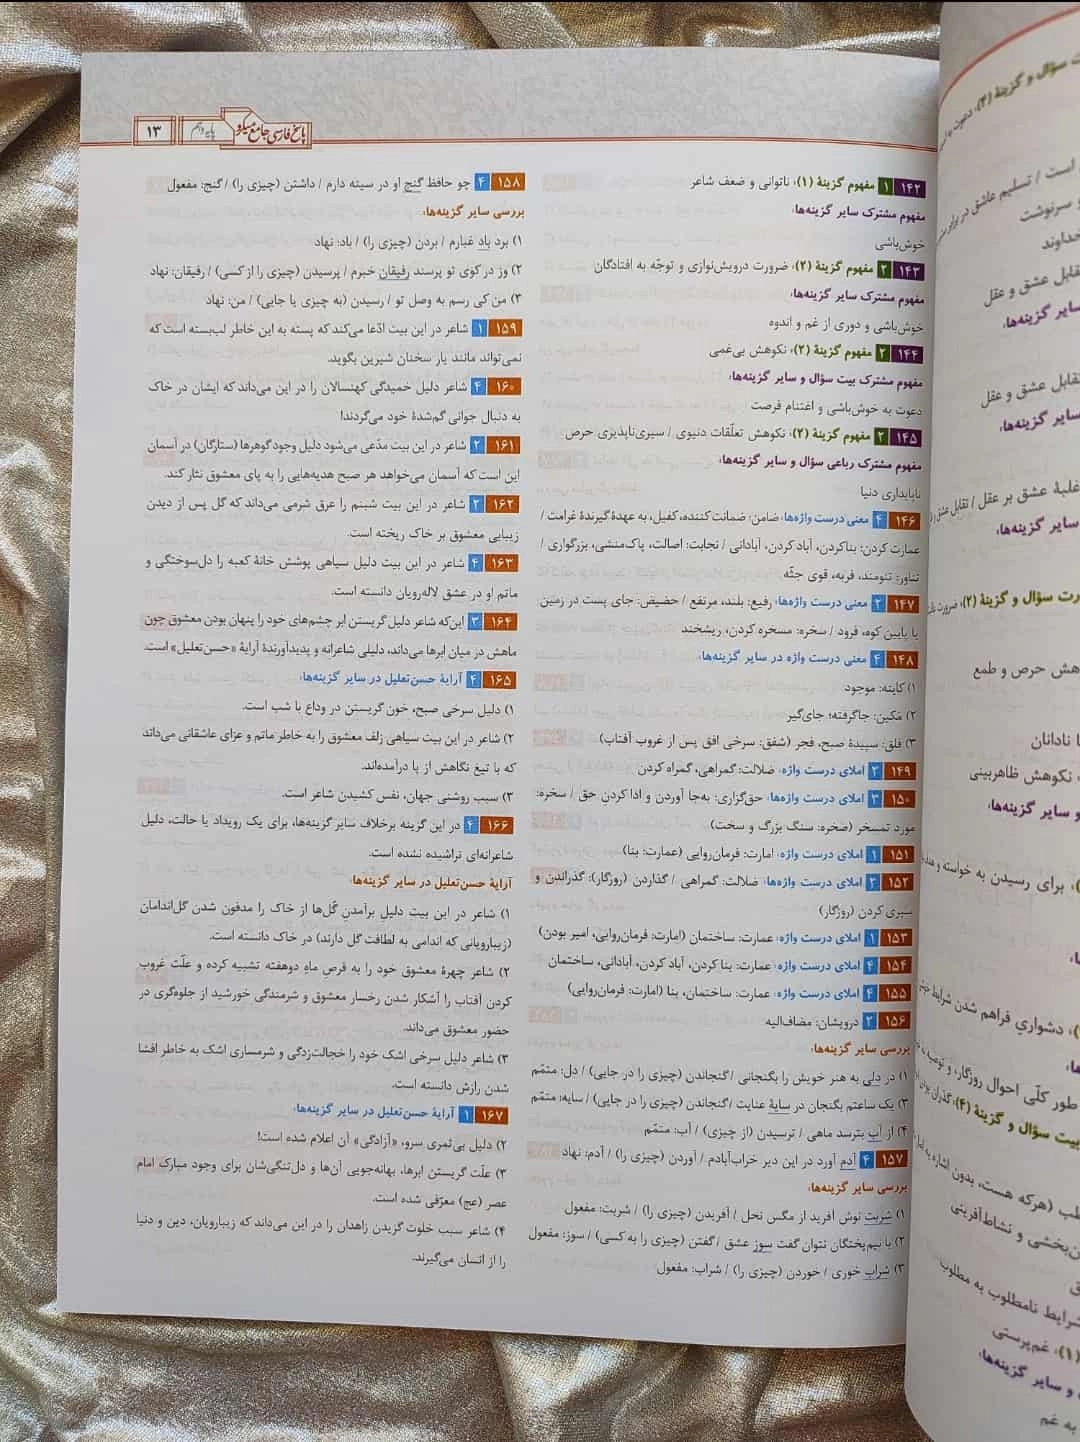 پاسخ فارسی جامع میکرو
پایه دهم
۱۳
۱۴۲ ۱ مفهوم گزینهٔ (۱): ناتوانی و ضعف شاعر
مفهوم مشترک سایر گزینه‌ها:
خوش‌باشی
۱۴۳ ۲ مفهوم گزینهٔ (۲): ضرورت درویش‌نوازی و توجّه به افتادگان
مفهوم مشترک سایر گزینه‌ها:
خوش‌باشی و دوری از غم و اندوه
۱۴۴ ۲ مفهوم گزینهٔ (۲): نکوهش بی‌غمی
مفهوم مشترک بیت سؤال و سایر گزینه‌ها:
دعوت به خوش‌باشی و اغتنام فرصت
۱۴۵ ۲ مفهوم گزینهٔ (۲): نکوهش تعلّقات دنیوی / سیری‌ناپذیری حرص
مفهوم مشترک رباعی سؤال و سایر گزینه‌ها:
ناپایداری دنیا
۱۴۶ ۴ معنی درست واژه‌ها: ضامن: ضمانت‌کننده، کفیل، به عهده‌گیرندهٔ غرامت /
عمارت کردن: بناکردن، آباد کردن، آبادانی / نجابت: اصالت، پاک‌منشی، بزرگواری /
تناور: تنومند، فربه، قوی جثّه
۱۴۷ ۲ معنی درست واژه‌ها: رفیع: بلند، مرتفع / حضیض: جای پست در زمین
یا پایین کوه، فرود / سخره: مسخره کردن، ریشخند
۱۴۸ ۴ معنی درست واژه در سایر گزینه‌ها:
۱) کاینه: موجود
۲) مَکین: جاگرفته؛ جای‌گیر
۳) فلق: سپیدهٔ صبح، فجر (شفق: سرخی افق پس از غروب آفتاب)
۱۴۹ ۲ املای درست واژه: ضلالت: گمراهی، گمراه کردن
۱۵۰ ۳ املای درست واژه‌ها: حق‌گزاری: به‌جا آوردن و ادا کردن حق / سخره:
مورد تمسخر (صخره: سنگ بزرگ و سخت)
۱۵۱ ۱ املای درست واژه: امارت: فرمان‌روایی (عمارت: بنا)
۱۵۲ ۲ املای درست واژه‌ها: ضلالت: گمراهی / گذاردن (روزگار): گذراندن و
سپری کردن (روزگار)
۱۵۳ ۱ املای درست واژه: عمارت: ساختمان (امارت: فرمان‌روایی، امیر بودن)
۱۵۴ ۴ املای درست واژه: عمارت: بنا کردن، آباد کردن، آبادانی، ساختمان
۱۵۵ ۴ املای درست واژه: عمارت: ساختمان، بنا (امارت: فرمان‌روایی)
۱۵۶ ۲ درویشان: مضاف‌الیه
بررسی سایر گزینه‌ها:
۱) در دلی به هنر خویش را بگنجانی / گنجاندن (چیزی را در جایی) / دل: متمّم
۳) یک ساعتم بگنجان در سایهٔ عنایت / گنجاندن (چیزی را در جایی) / سایه: متمّم
۴) از آب بترسد ماهی / ترسیدن (از چیزی) / آب: متمّم
۱۵۷ ۴ آدم آورد در این دیر خراب‌آبادم / آوردن (چیزی را) / آدم: نهاد
بررسی سایر گزینه‌ها:
۱) شربت نوش آفرید از مگس نحل / آفریدن (چیزی را) / شربت: مفعول
۲) با نیم‌پختگان نتوان گفت سوز عشق / گفتن (چیزی را به کسی) / سوز: مفعول
۳) شراب خوری / خوردن (چیزی را) / شراب: مفعول
۱۵۸ ۴ چو حافظ گنج او در سینه دارم / داشتن (چیزی را) / گنج: مفعول
بررسی سایر گزینه‌ها:
۱) برد باد غبارم / بردن (چیزی را) / باد: نهاد
۲) وز در کوی تو پرسند رفیقان خبرم / پرسیدن (چیزی را از کسی) / رفیقان: نهاد
۳) من کی رسم به وصل تو / رسیدن (به چیزی یا جایی) / من: نهاد
۱۵۹ ۱ شاعر در این بیت ادّعا می‌کند که پسته به این خاطر لب‌بسته است که
نمی‌تواند مانند یار سخنان شیرین بگوید.
۱۶۰ ۴ شاعر دلیل خمیدگی کهنسالان را در این می‌داند که ایشان در خاک
به دنبال جوانی گم‌شدهٔ خود می‌گردند!
۱۶۱ ۲ شاعر در این بیت مدّعی می‌شود دلیل وجود گوهرها (ستارگان) در آسمان
این است که آسمان می‌خواهد هر صبح هدیه‌هایی را به پای معشوق نثار کند.
۱۶۲ ۲ شاعر در این بیت شبنم را عرق شرمی می‌داند که گل پس از دیدن
زیبایی معشوق بر خاک ریخته است.
۱۶۳ ۴ شاعر در این بیت دلیل سیاهی پوشش خانهٔ کعبه را دل‌سوختگی و
ماتم او در عشق لاله‌رویان دانسته است.
۱۶۴ ۳ این‌که شاعر دلیل گریستن ابر چشم‌های خود را پنهان بودن معشوق چون
ماهش در میان ابرها می‌داند، دلیلی شاعرانه و پدیدآورندهٔ آرایهٔ «حسن‌تعلیل» است.
۱۶۵ ۴ آرایهٔ حسن‌تعلیل در سایر گزینه‌ها:
۱) دلیل سرخی صبح، خون گریستن در وداع با شب است.
۲) شاعر در این بیت سیاهی زلف معشوق را به خاطر ماتم و عزای عاشقانی می‌داند
که با تیغ نگاهش از پا درآمده‌اند.
۳) سبب روشنی جهان، نفس کشیدن شاعر است.
۱۶۶ ۴ در این گزینه برخلاف سایر گزینه‌ها، برای یک رویداد یا حالت، دلیل
شاعرانه‌ای تراشیده نشده است.
آرایهٔ حسن‌تعلیل در سایر گزینه‌ها:
۱) شاعر در این بیت دلیل برآمدن گُل‌ها از خاک را مدفون شدن گل‌اندامان
(زیبارویانی که اندامی به لطافت گل دارند) در خاک دانسته است.
۲) شاعر چهرهٔ معشوق خود را به قرص ماهِ دوهفته تشبیه کرده و علّت غروب
کردن آفتاب را آشکار شدن رخسار معشوق و شرمندگی خورشید از جلوه‌گری در
حضور معشوق می‌داند.
۳) شاعر دلیل سرخی اشک خود را خجالت‌زدگی و شرمساری اشک به خاطر افشا
شدن رازش دانسته است.
۱۶۷ ۱ آرایهٔ حسن‌تعلیل در سایر گزینه‌ها:
۲) دلیل بی‌ثمری سرو، «آزادگی» آن اعلام شده است!
۳) علّت گریستن ابرها، بهانه‌جویی آن‌ها و دل‌تنگی‌شان برای وجود مبارک امام
عصر (عج) معرّفی شده است.
۴) شاعر سبب خلوت گزیدن زاهدان را در این می‌داند که زیبارویان، دین و دنیا
را از انسان می‌گیرند.
ت سؤال و گزینهٔ (۴):
است / تسلیم عاشق در برابر
و سرنوشت
خداوند
قابل عشق و عقل
سایر گزینه‌ها:
تقابل عشق و عقل
سایر گزینه‌ها:
غلبهٔ عشق بر عقل / تقابل عشق
سایر گزینه‌ها:
سؤال و گزینهٔ (۲): ضرورت
حرص و طمع
نادانان
نکوهش ظاهربینی
و سایر گزینه‌ها:
برای رسیدن به خواسته و
دشواریِ فراهم شدن شرایط
طور کلّی احوال روزگار، و توصیه
بیت سؤال و گزینهٔ (۴): گذران
(هرکه هست، بدون اشاره به
و نشاط‌آفرینی
شرایط نامطلوب به مطلوب
(۱): غم‌پرستی
و سایر گزینه‌ها:
به غم